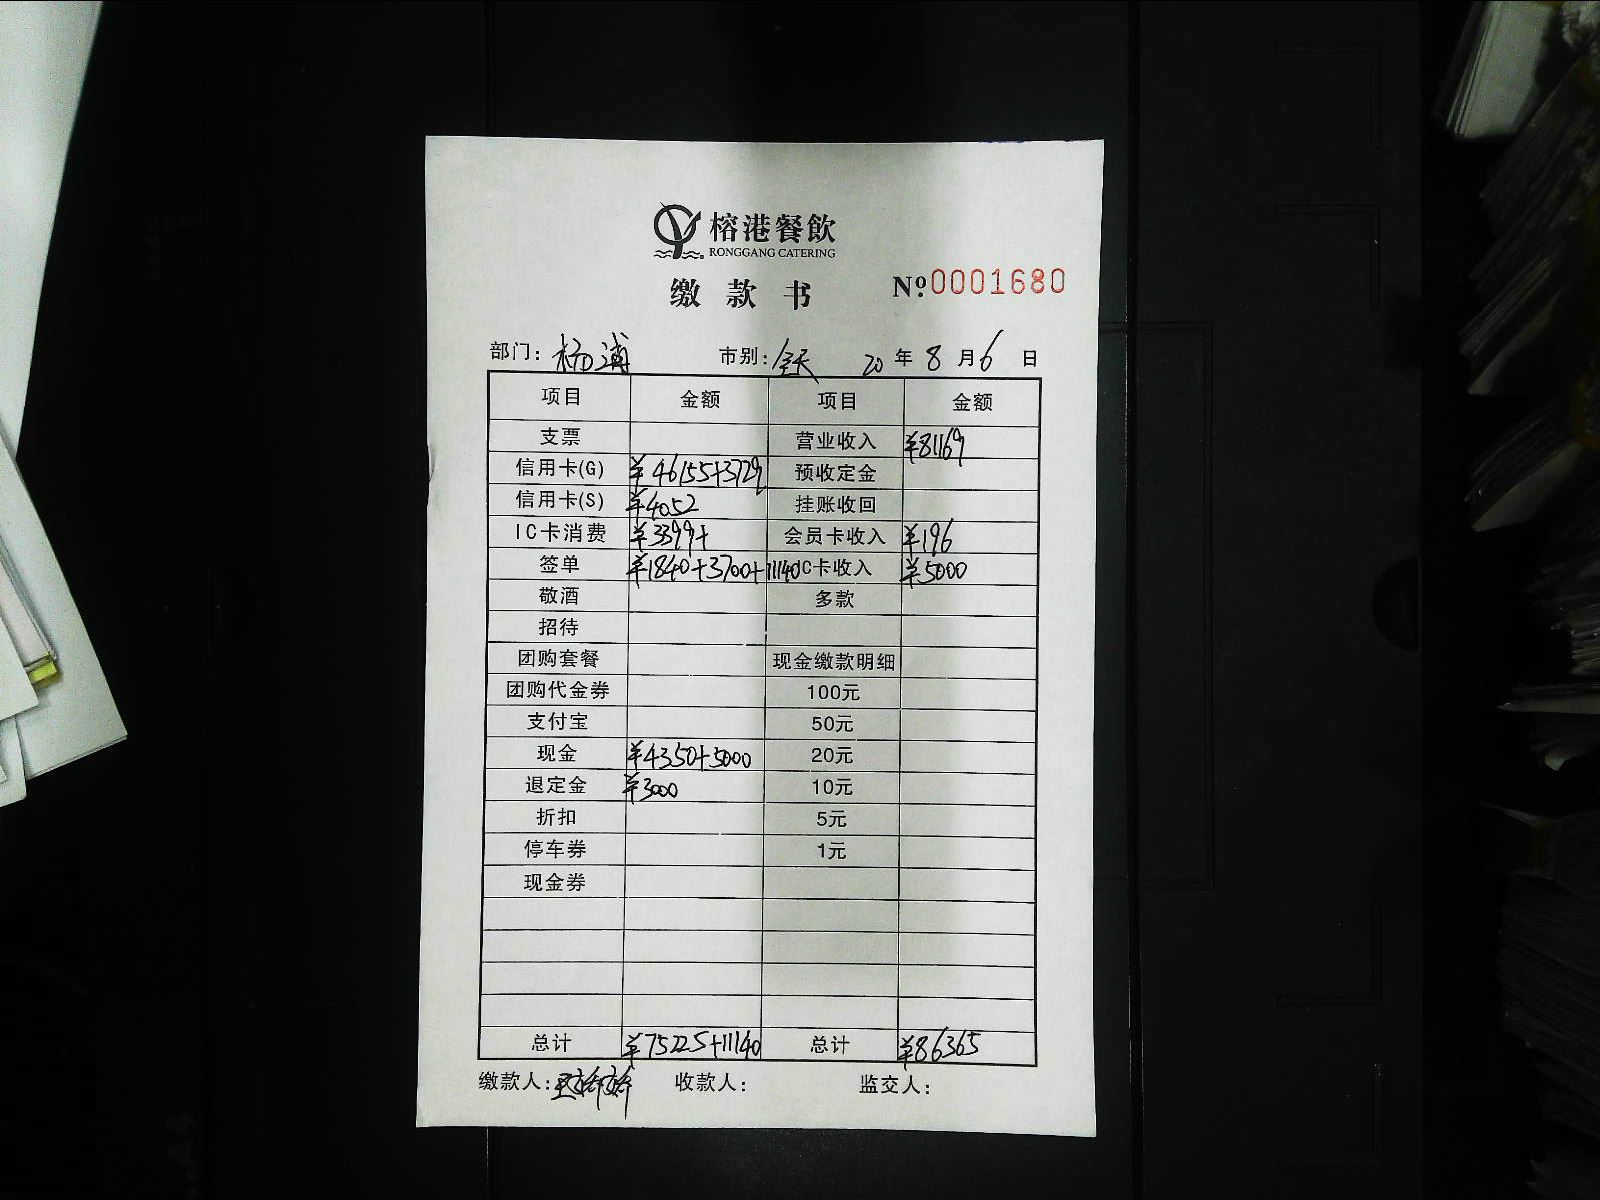 榕港餐飲
RONGGANG CATERING
缴款书 Nº:0001680
部门: 杨浦 市别: 全天 20年8月6日
项目 金额 项目 金额
支票 营业收入 ¥81169
信用卡(G) ¥46155+3729 预收定金
信用卡(S) ¥4052 挂账收回
IC卡消费 ¥3399+ 会员卡收入 ¥196
签单 ¥1840+3700+11140 IC卡收入 ¥5000
敬酒 多款
招待
团购套餐 现金缴款明细
团购代金券 100元
支付宝 50元
现金 ¥4350+5000 20元
退定金 ¥3000 10元
折扣 5元
停车券 1元
现金券
总计 ¥75225+11140 总计 ¥86365
缴款人: 收款人: 监交人: